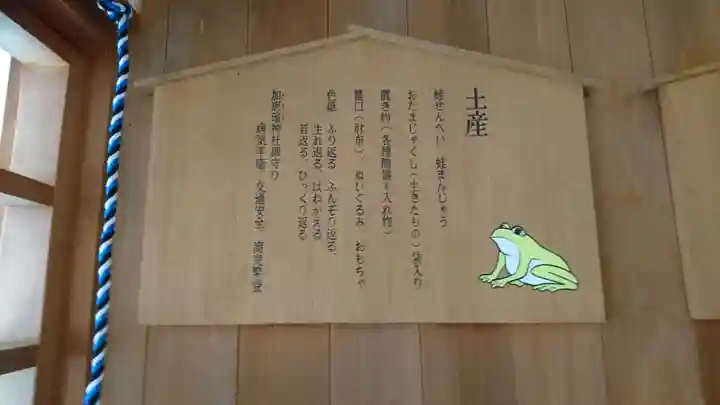 土産
蛙せんべい 蛙まんじゅう
おたまじゃくし(生きたもの)袋入り
置き物(各種陶器の入れ物)
蟇口(財布) ぬいぐるみ おもちゃ
色紙 ふり返る ふんぞり返る、
生れ返る、はねかえる
若返る ひっくり返る
加恵瑠神社御守り
病気平癒 交通安全 商売繁盛